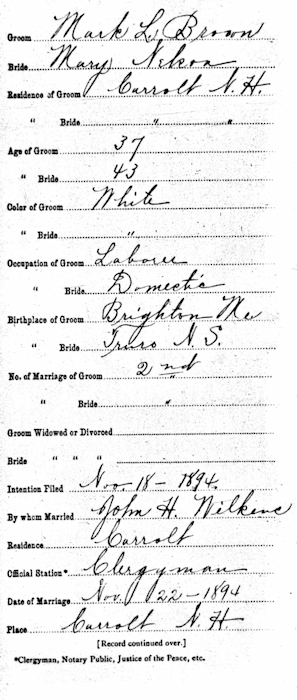 Groom Mark L. Brown
Bride Mary Nelson
Residence of Groom Carroll N. H.
" Bride " "
Age of Groom 37
" Bride 43
Color of Groom White
" Bride "
Occupation of Groom Laborer
" Bride Domestic
Birthplace of Groom Brighton Me
" Bride Truro N. S.
No. of Marriage of Groom 2nd
" Bride "
Groom Widowed or Divorced
Bride " " "
Intention Filed Nov 18 - 1894.
By whom Married John H. Wilkins
Residence Carroll
Official Station* Clergyman
Date of Marriage Nov. 22 - 1894
Place Carroll N. H
[Record continued over.]
*Clergyman, Notary Public, Justice of the Peace, etc.